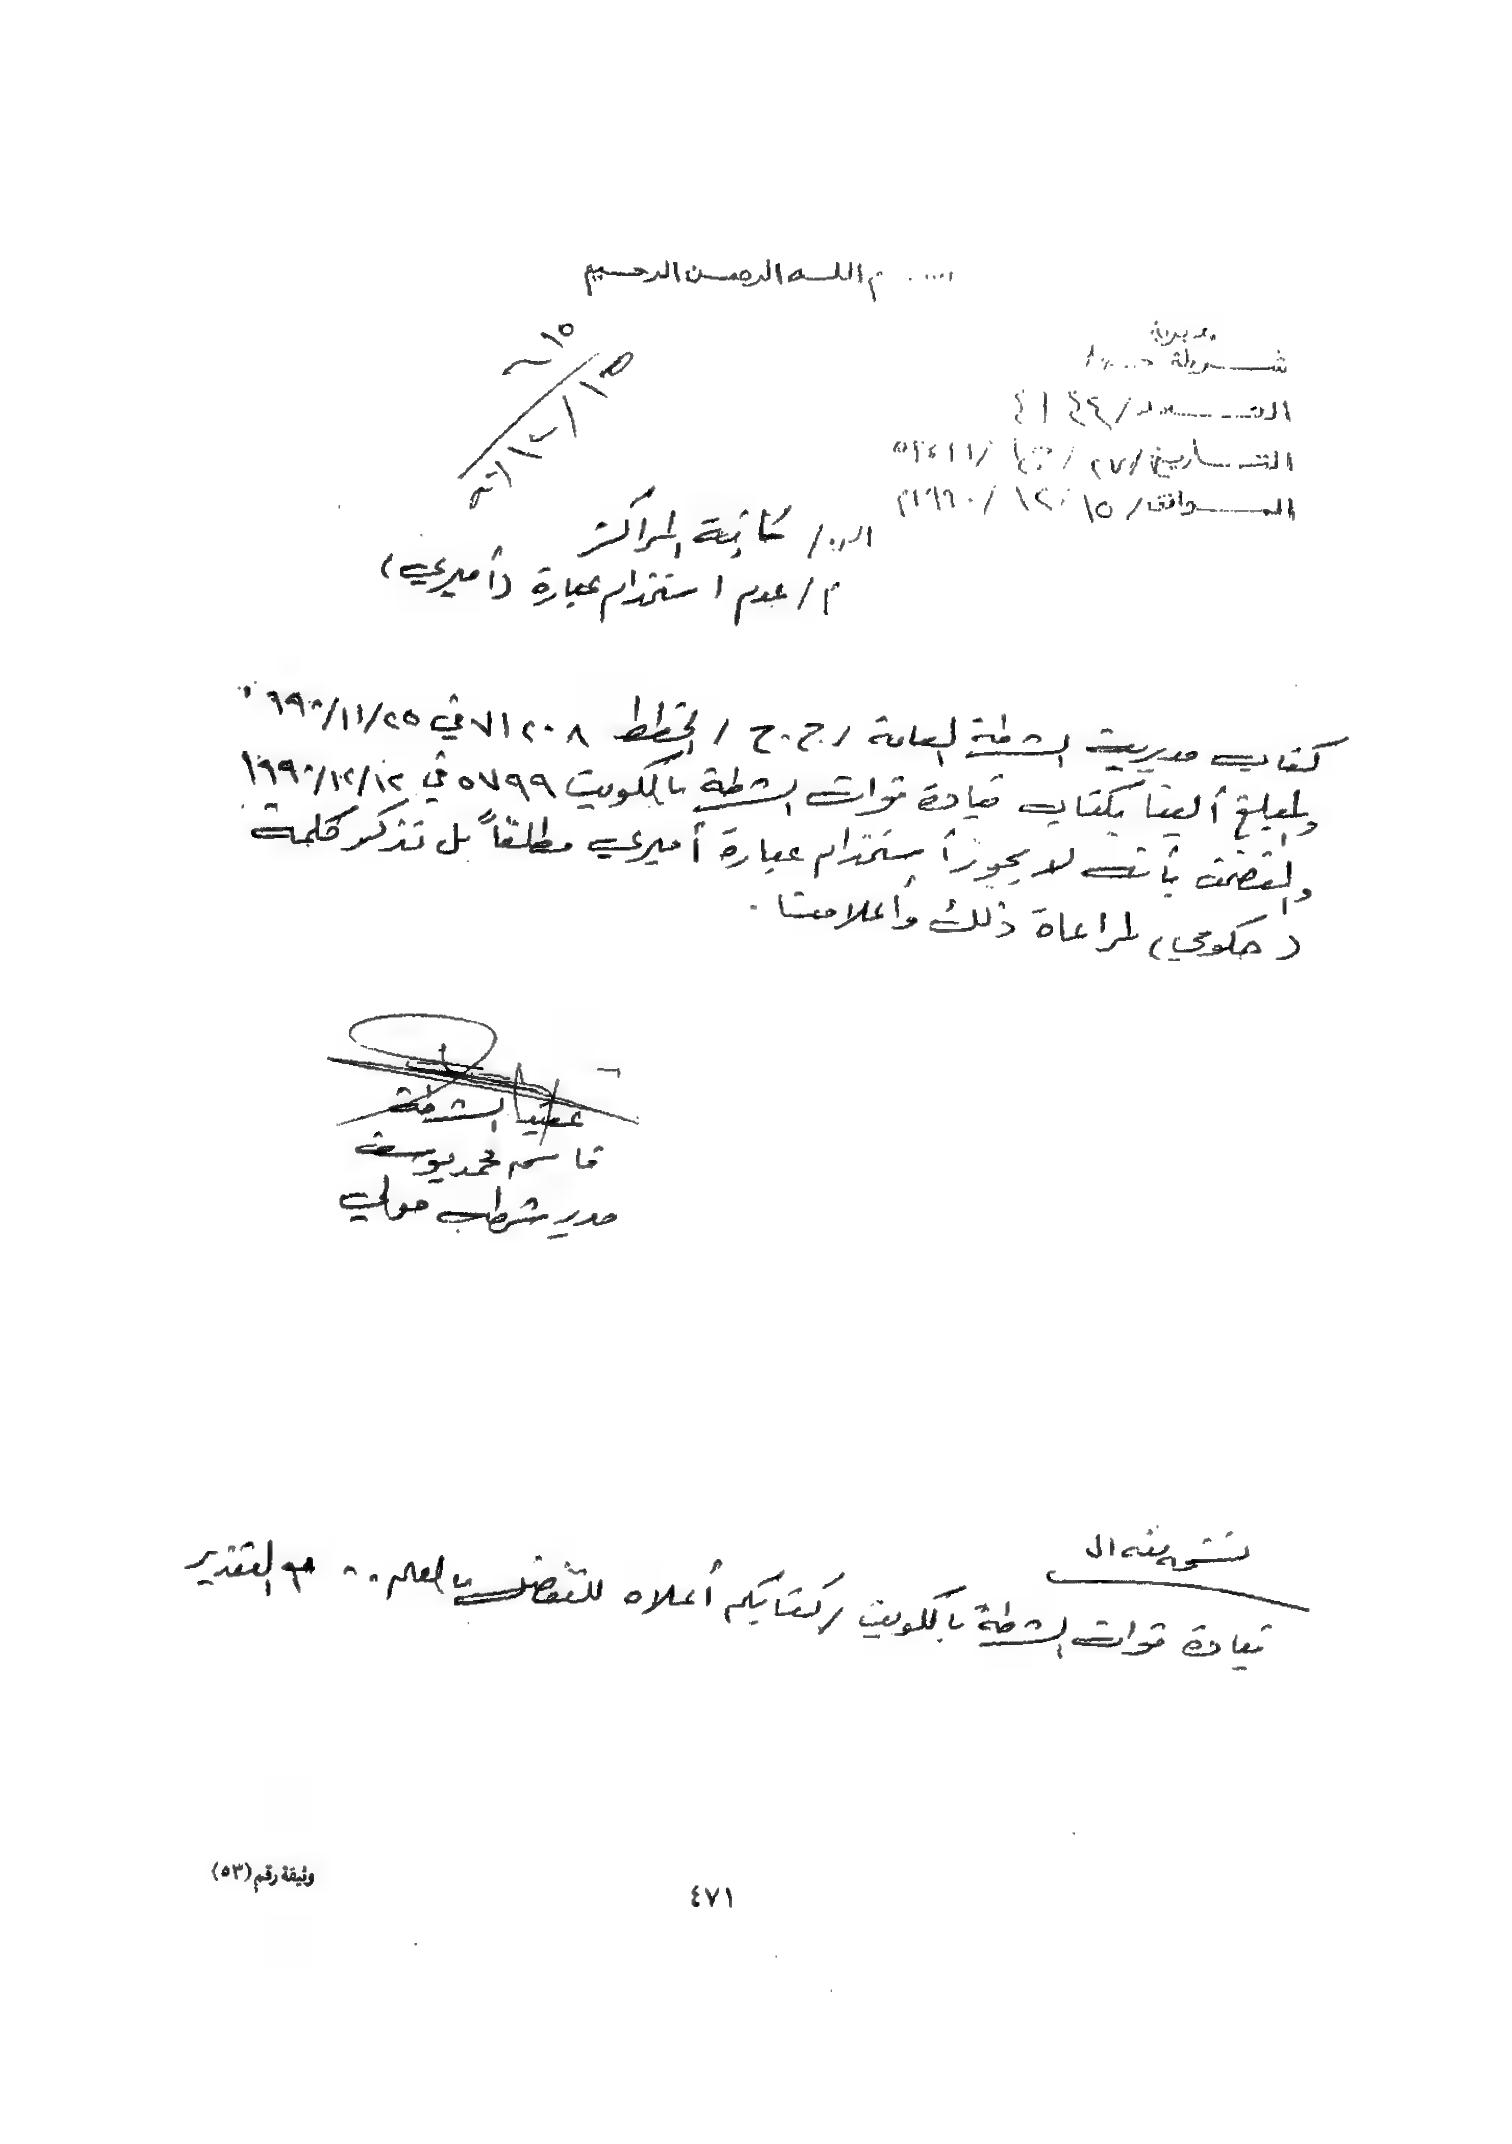 م اللـــه الرحمـــن الرحـــيم
مديرية
شـــرطة
العـــدد/ ٤٤١٤
التـــاريخ/ ٢٧ / / ١٤١١هـ
المـــوافق/ ١٥ / ١٢ / ١٩٩٠م
١٥
١٥/١٢/
الى/ كافة المراكز
م/ عدم استخدام عبارة (أميري)
كتاب مديرية الشرطة العامة / ج.ح / الخطط ٧١٢٠٨ في ٢٥/١١/٩٩٠
والمبلغ ألينا بكتاب قيادة قوات الشرطة بالكويت ٥٧٩٩ في ١٢/١٢/١٩٩٠
والمتضمن بأنه لا يجوز أستخدام عبارة أميري مطلقاً بل تذكر كلمة
(حكومي) لمراعاة ذلك وأعلامنا .
عقيد الشرطة
قاسم محمد يوسف
مدير شرطة حولي
نسخة منه الى
قيادة قوات الشرطة بالكويت / كتابكم أعلاه للتفضل بالعلم .. مع التقدير
وثيقة رقم (٥٣)
٤٧١